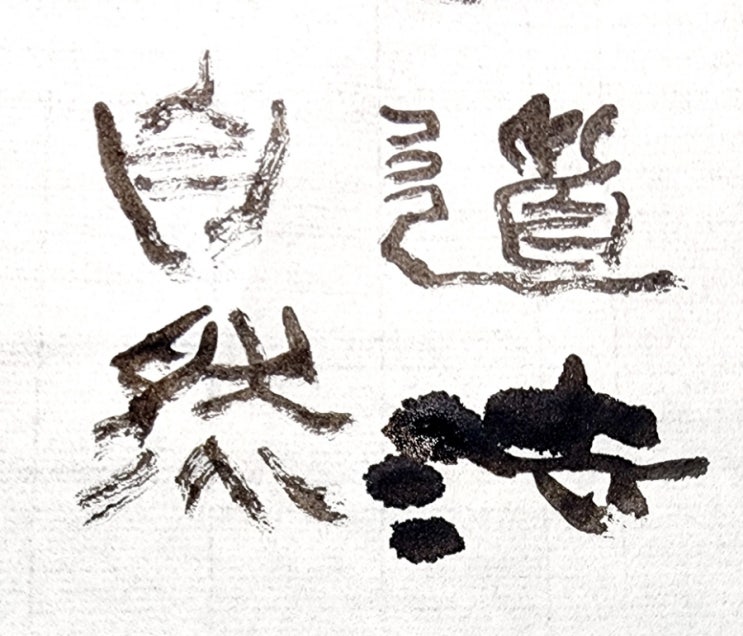 道法
自然